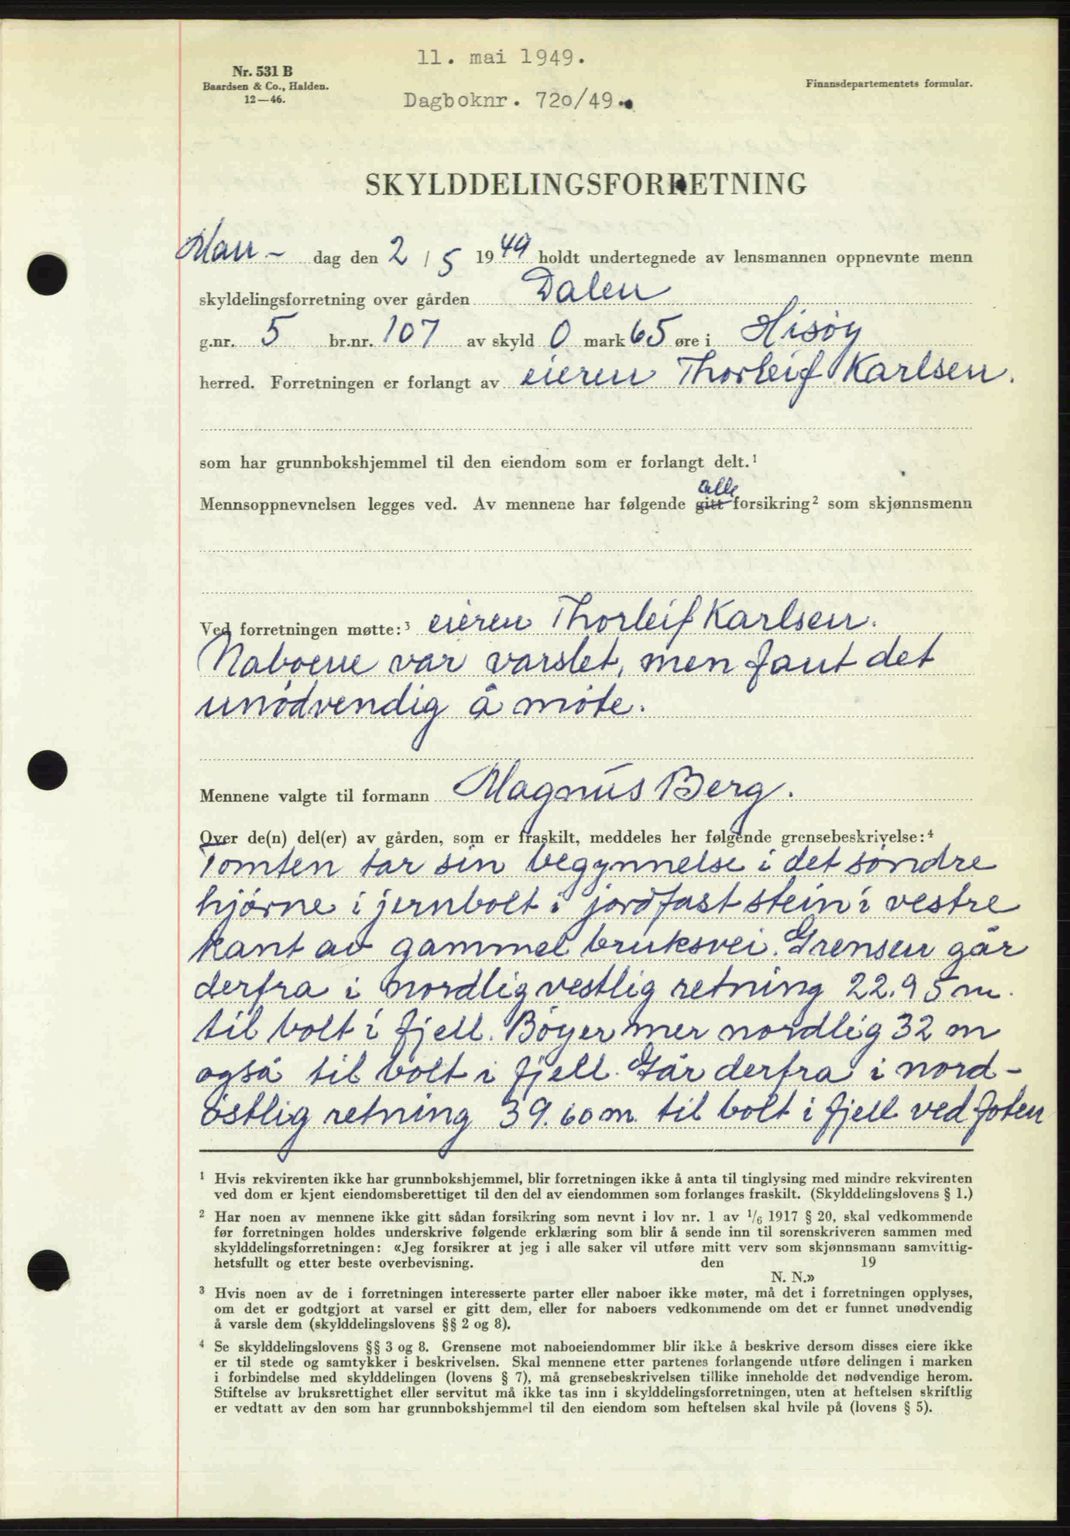 11. mai 1949.
Nr. 531 B
Baardsen & Co., Halden.
12—46.
Finansdepartementets formular.
Dagboknr. 720/49.
SKYLDDELINGSFORRETNING
Man - dag den 2 / 5 1949 holdt undertegnede av lensmannen oppnevnte menn
skyldelingsforretning over gården Dalen
g.nr. 5 br.nr. 107 av skyld 0 mark 65 øre i Hisøy
herred. Forretningen er forlangt av eieren Thorleif Karlsen.
som har grunnbokshjemmel til den eiendom som er forlangt delt.¹
alle
Mennsoppnevnelsen legges ved. Av mennene har følgende gitt forsikring² som skjønnsmenn
Ved forretningen møtte:³ eieren Thorleif Karlsen.
Naboene var varslet, men fant det
unødvendig å møte.
Mennene valgte til formann Magnus Berg.
Over de(n) del(er) av gården, som er fraskilt, meddeles her følgende grensebeskrivelse:⁴
Tomten tar sin begynnelse i det søndre
hjørne i jernbolt i jordfast stein i vestre
kant av gammel bruksvei. Grensen går
derfra i nordlig vestlig retning 22.95 m.
til bolt i fjell. Bøyer mer nordlig 32 m
også til bolt i fjell. Går derfra i nord-
østlig retning 39.60 m. til bolt i fjell ved foten
¹ Hvis rekvirenten ikke har grunnbokshjemmel, blir forretningen ikke å anta til tinglysing med mindre rekvirenten
ved dom er kjent eiendomsberettiget til den del av eiendommen som forlanges fraskilt. (Skylddelingslovens § 1.)
² Har noen av mennene ikke gitt sådan forsikring som nevnt i lov nr. 1 av 1/6 1917 § 20, skal vedkommende
før forretningen holdes underskrive følgende erklæring som blir å sende inn til sorenskriveren sammen med
skylddelingsforretningen: «Jeg forsikrer at jeg i alle saker vil utføre mitt verv som skjønnsmann samvittig-
hetsfullt og etter beste overbevisning. den 19
N. N.»
³ Hvis noen av de i forretningen interesserte parter eller naboer ikke møter, må det i forretningen opplyses,
om det er godtgjort at varsel er gitt dem, eller for naboers vedkommende om det er funnet unødvendig
å varsle dem (skylddelingslovens §§ 2 og 8).
⁴ Se skylddelingslovens §§ 3 og 8. Grensene mot naboeiendommer blir ikke å beskrive dersom disses eiere ikke
er til stede og samtykker i beskrivelsen. Skal mennene etter partenes forlangende utføre delingen i marken
i forbindelse med skylddelingen (lovens § 7), må grensebeskrivelsen tillike inneholde det nødvendige herom.
Stiftelse av bruksrettighet eller servitut må ikke tas inn i skylddelingsforretningen, uten at heftelsen skriftlig
er vedtatt av den som har grunnbokshjemmel til den eiendom som heftelsen skal hvile på (lovens § 5).